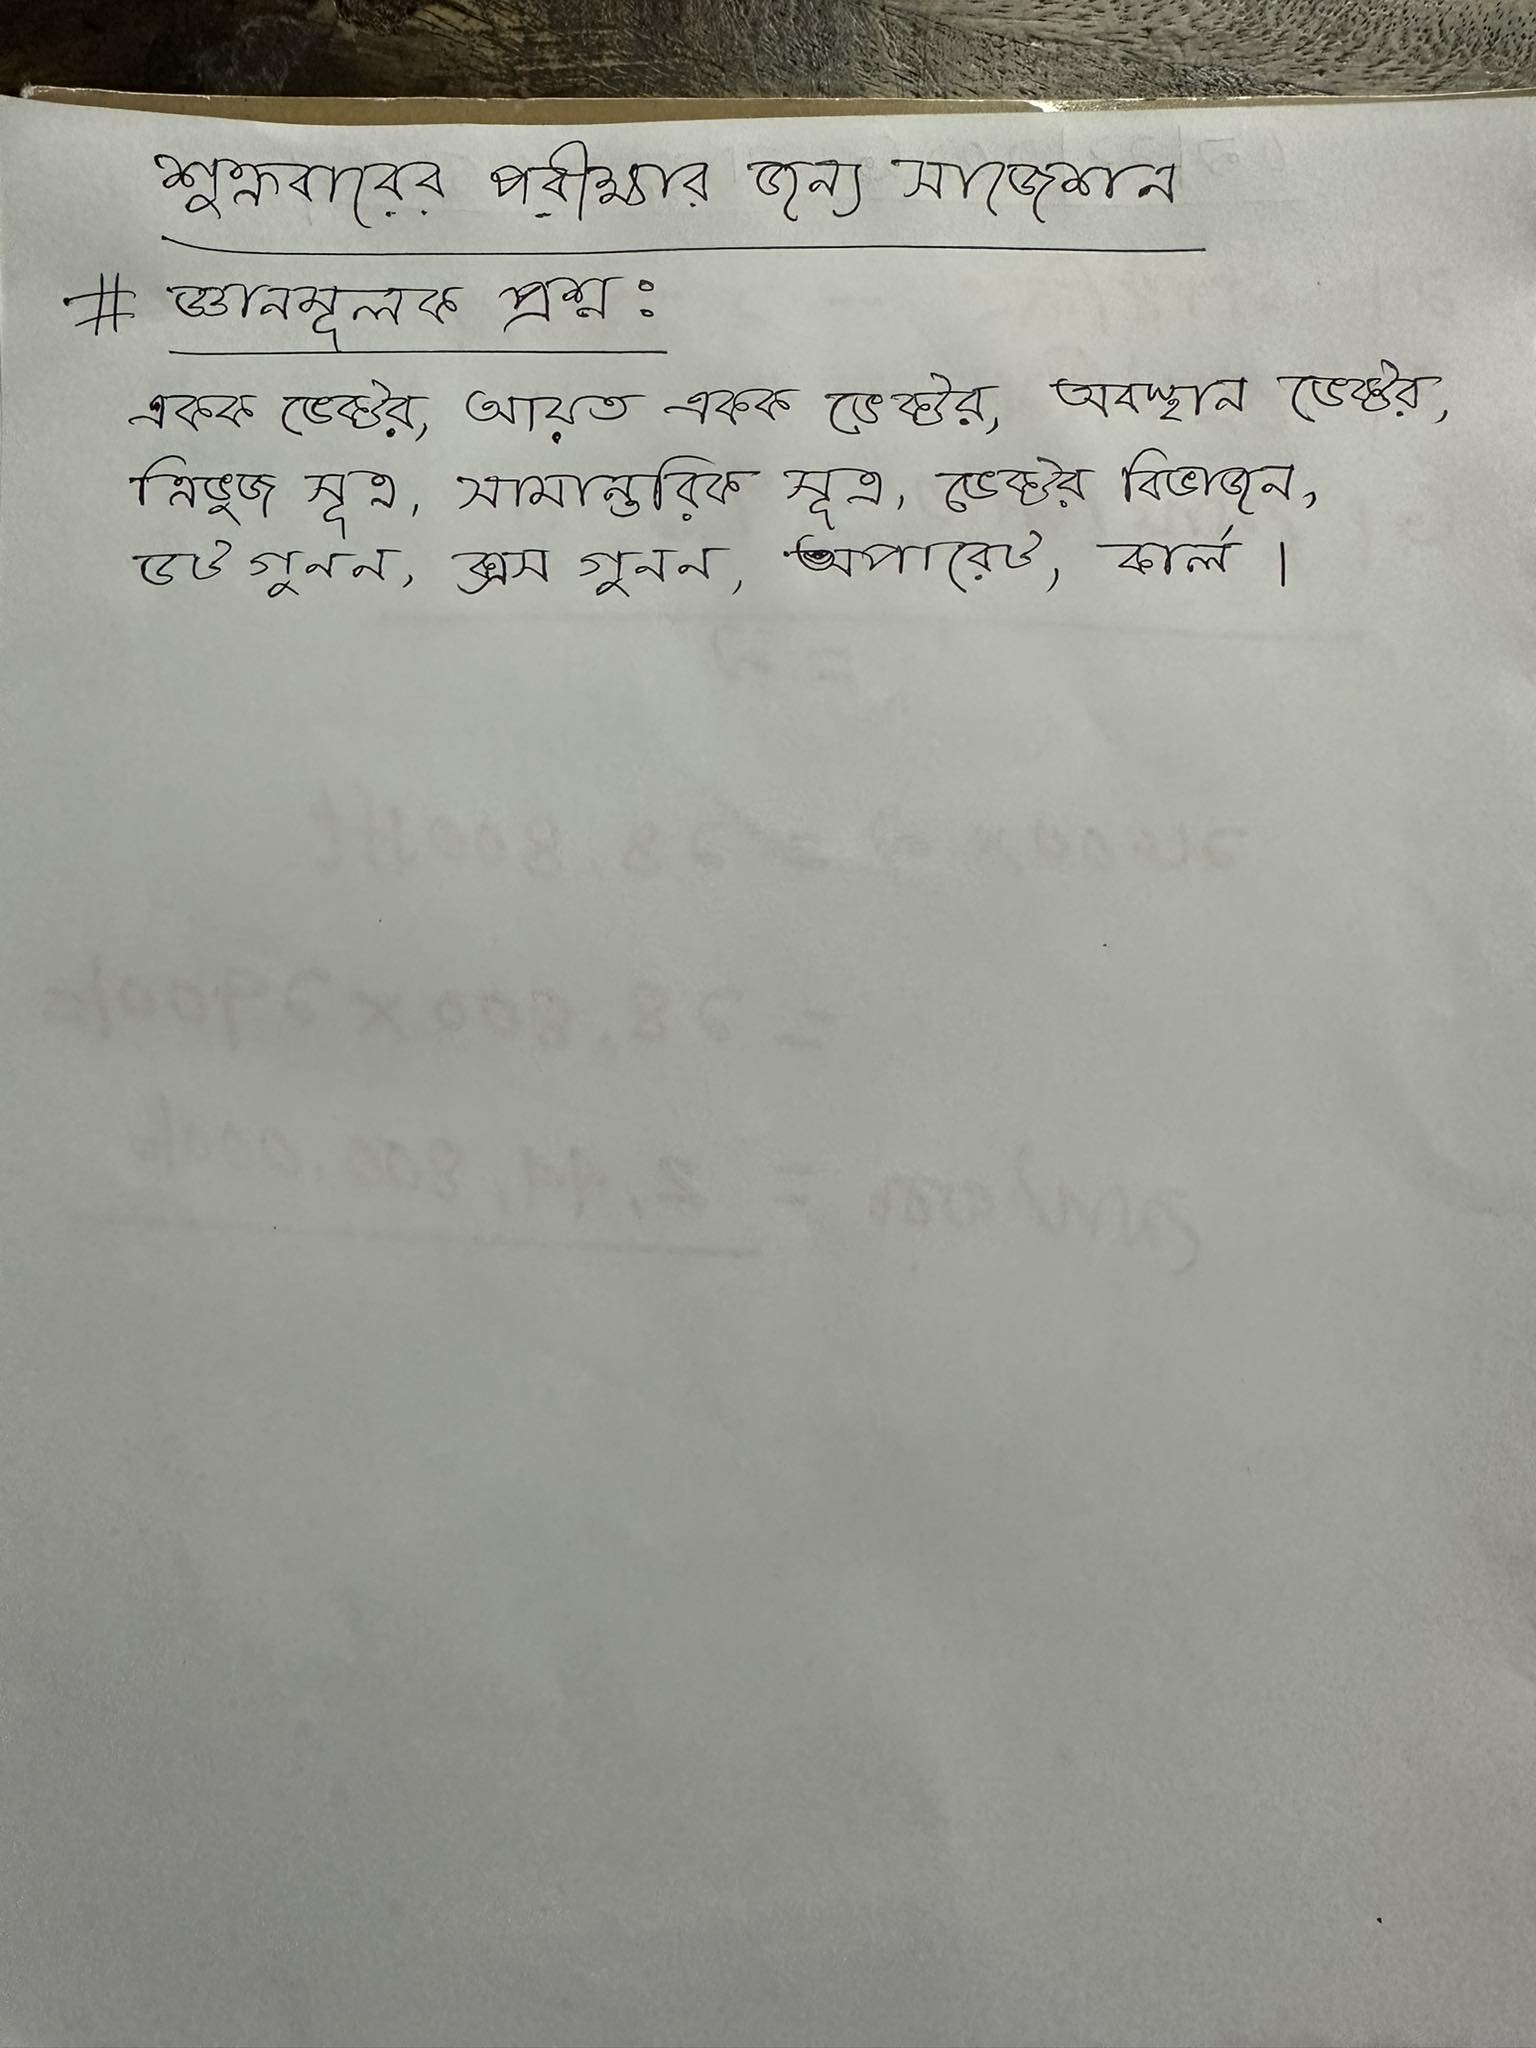 শুক্রবারের পরীক্ষার জন্য সাজেশান
# জ্ঞানমূলক প্রশ্ন :
একক ভেক্টর, আয়ত একক ভেক্টর, অবস্থান ভেক্টর,
ত্রিভুজ সূত্র, সামান্তরিক সূত্র, ভেক্টর বিভাজন,
ডট গুনন, ক্রস গুনন, অপারেট, কার্ল ।